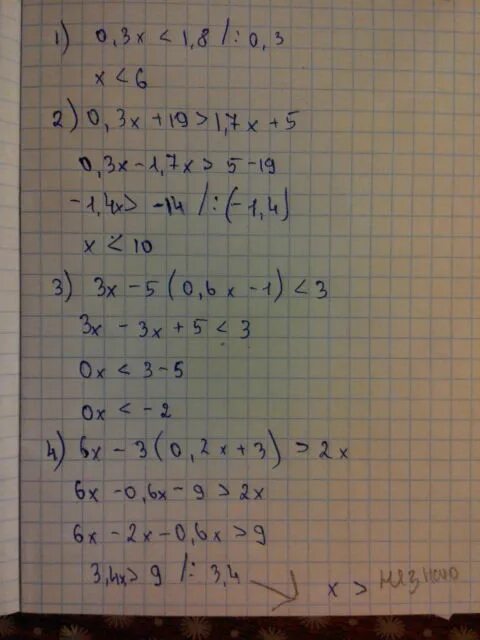 1) 0,3x < 1,8 /: 0,3
x < 6
2) 0,3x + 19 > 1,7x + 5
0,3x - 1,7x > 5 - 19
-1,4x > -14 /: (-1,4)
x < 10
3) 3x - 5 (0,6x - 1) < 3
3x - 3x + 5 < 3
0x < 3 - 5
0x < -2
4) 6x - 3 (0,2x + 3) > 2x
6x - 0,6x - 9 > 2x
6x - 2x - 0,6x > 9
3,4x > 9 /: 3,4
x >